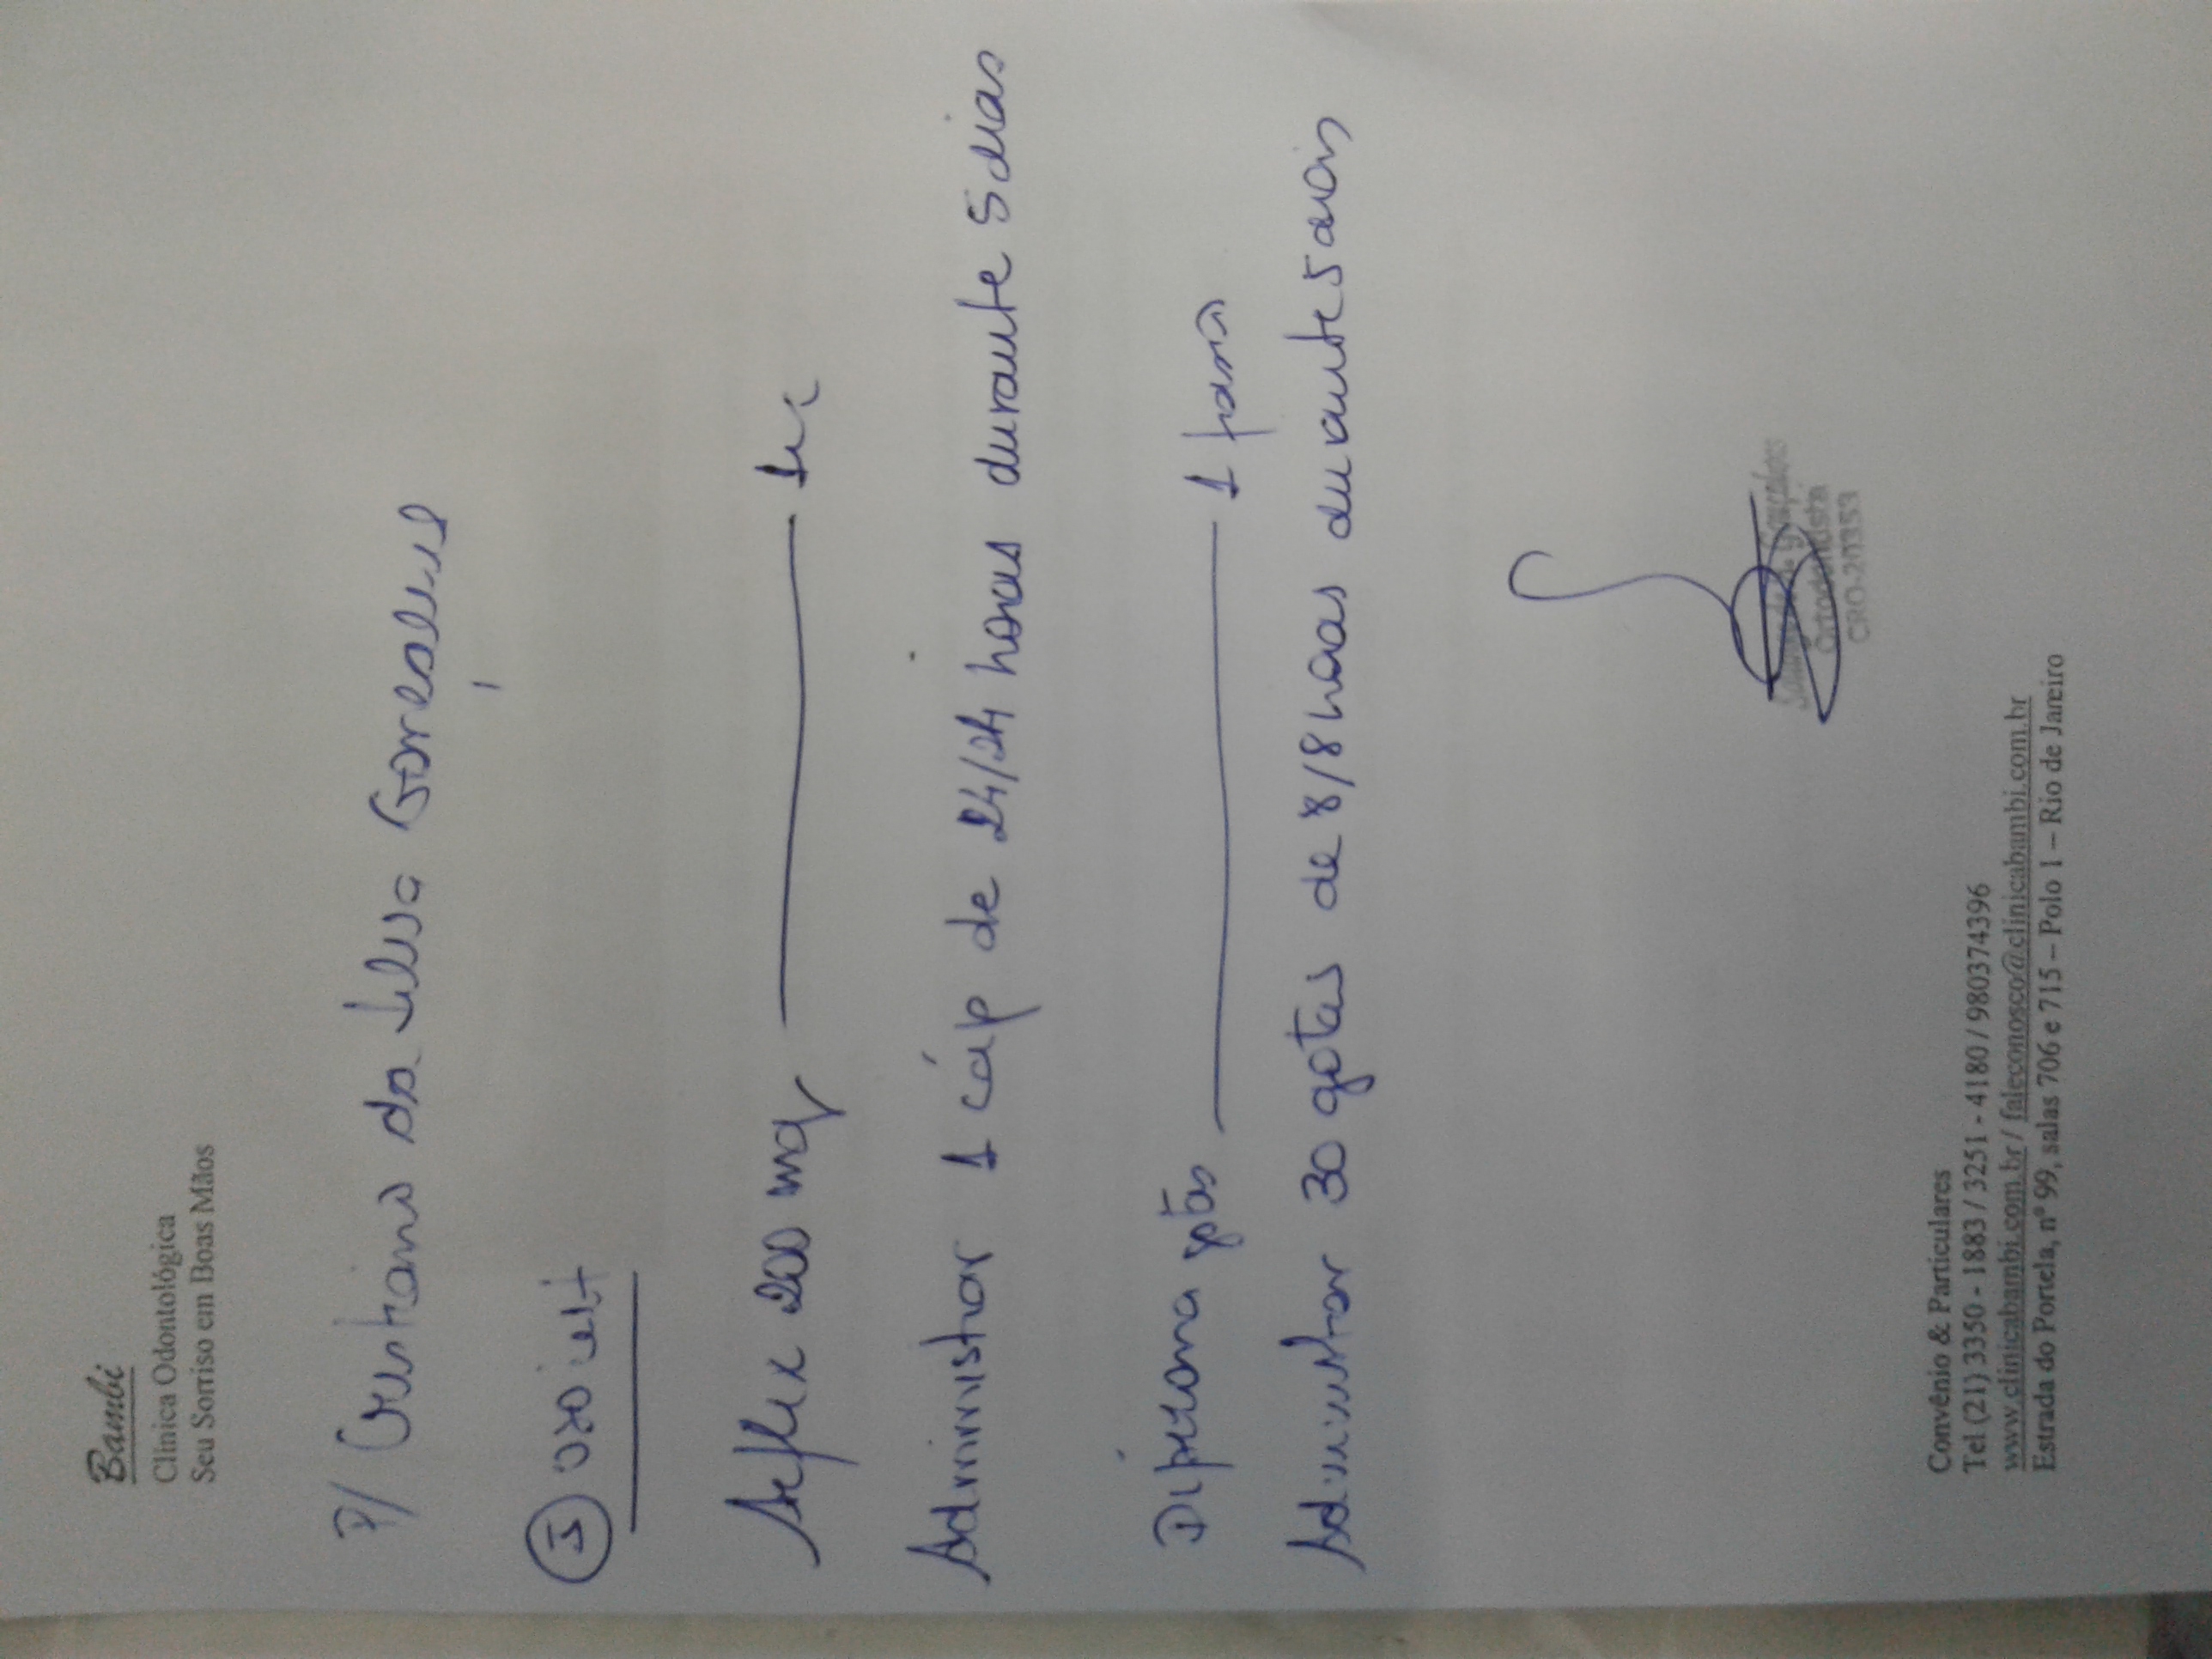 Bambi
Clínica Odontológica
Seu Sorriso em Boas Mãos
P/ Cristiana da Silva Gonçalves
I uso int
200 mg ——— 1
Administrar 1 cáp de 24/24 horas durante 5 dias
Dipirona gotas ——— 1
Administrar 30 gotas de 8/8 horas durante 5 dias
Ortodontista
CRO-20353
Convênio & Particulares
Tel (21) 3350 - 1883 / 3251 - 4180 / 980374396
www.clinicabambi.com.br / faleconosco@clinicabambi.com.br
Estrada do Portela, nº 99, salas 706 e 715 – Polo 1 – Rio de Janeiro